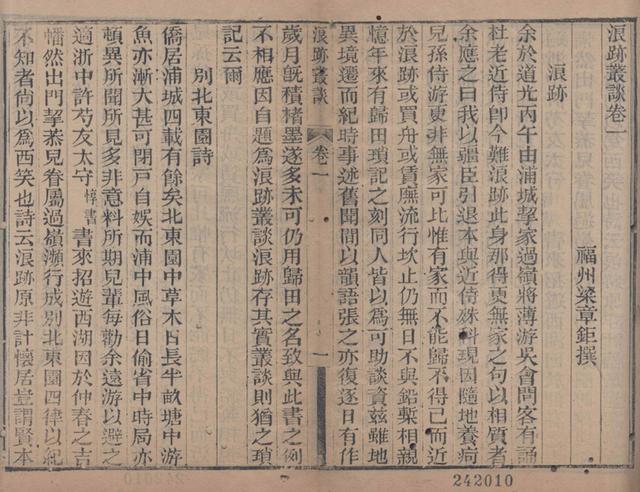 浪跡叢談卷一
福州梁章鉅撰
浪跡
余於道光丙午由浦城挈家過嶺將薄游吳會問客有誦
杜老近侍卽今難浪跡此身那得更無家之句以相質者
余應之曰我以疆臣引退本與近侍殊科現因隨地養疴
兒孫侍游更非無家可比惟有家而不能歸不得已而近
於浪跡或買舟或賃廡流行坎止仍無日不與鉛槧相親
憶年來有歸田瑣記之刻同人皆以爲可助談資茲雖地
異境遷而紀時事述舊聞間以韻語張之亦復逐日有作
浪跡叢談
卷一
一
歲月旣積楮墨遂多未可仍用歸田之名致與此書之例
不相應因自題爲浪跡叢談浪跡存其實叢談則猶之瑣
記云爾
別北東園詩
僑居浦城四載有餘矣北東園中草木日長半畝塘中游
魚亦漸大甚可閉戸自娛而浦中風俗日偷省中時局亦
頓異所聞所見多非意料所期兒輩每勸余遠游以避之
適浙中許芍友太守
惇書
書來招遊西湖因於仲春之吉
幡然出門挈恭兒眷屬過嶺瀕行成別北東園四律以紀
不知者尙以爲西笑也詩云浪跡原非計懷居豈謂賢本
242010